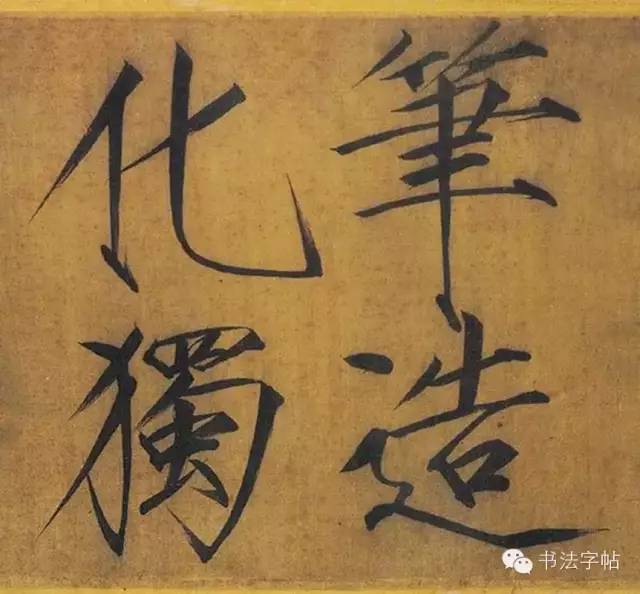 筆造
化獨
书法字帖